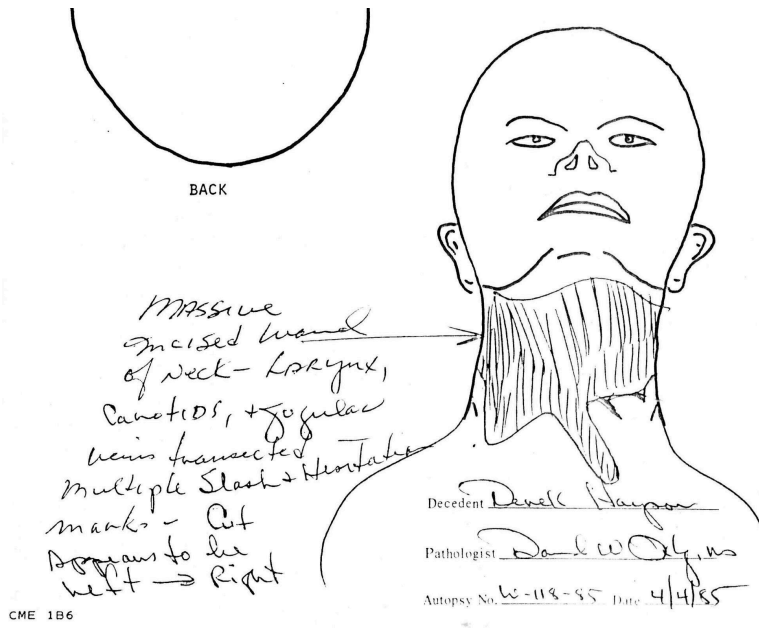 BACK
Massive
incised wound
of neck - Larynx,
Carotids, + jugular
veins transected
Multiple Slash + Hesitation
marks - Cut
Appears to be
Left → Right
Decedent Derek
Pathologist W MD
Autopsy No. W-118-85 Date 4/4/85
CME 1B6